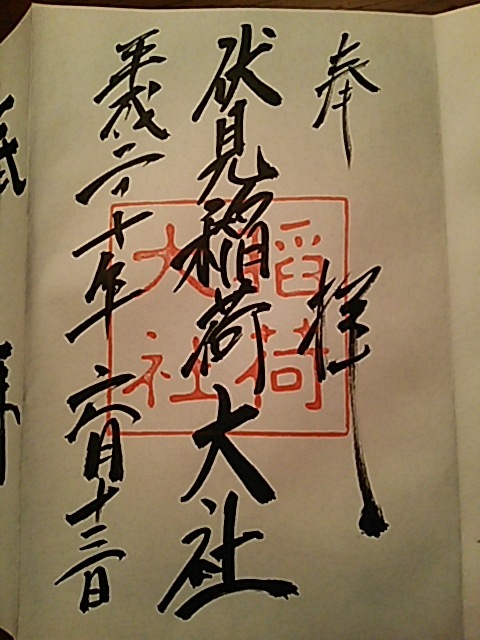 奉拝
伏見稲荷大社
平成二十年六月十三日
稲荷
大社